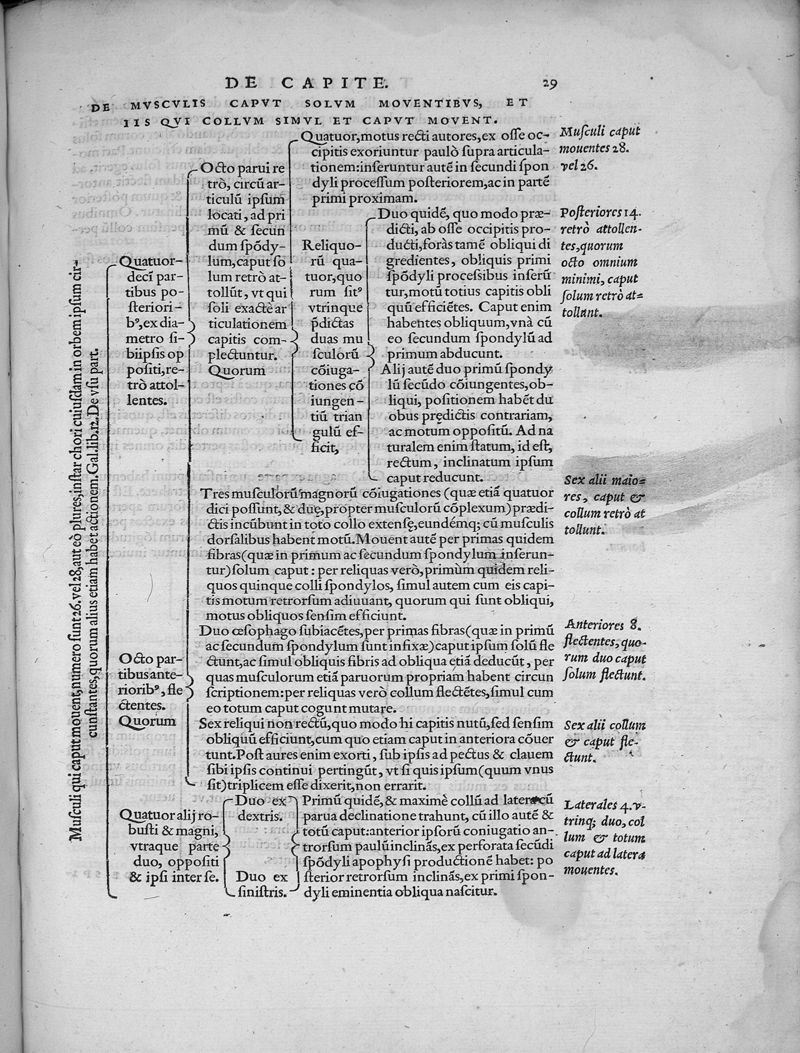 DE CAPITE.
29
DE MVSCVLIS CAPVT SOLVM MOVENTIBVS, ET
IIS QVI COLLVM SIMVL ET CAPVT MOVENT.
Muſculi qui caput mouent, numero ſunt 26. vel 28, aut eò plures, inſtar chori cuiuſdam in orbem ipſum cir-
cunſtantes, quorum alius etiam habet actionem. Gal. lib. 12. De vſu part.
Quatuor-
decī par-
tibus po-
ſteriori-
bꝰ, ex dia-
metro ſi-
biipſis op
poſiti, re-
trò attol-
lentes.
Octo parui re
trò, circū ar-
ticulū ipſum
locati, ad pri
mū & ſecun
dum ſpōdy-
lum, caput ſo
lum retrò at-
tollūt, vt qui
ſoli exactè ar
ticulationem
capitis com-
plectuntur.
Quorum
Quatuor, motus recti autores, ex oſſe oc-
cipitis exoriuntur paulò ſupra articula-
tionem: inſeruntur autē in ſecundi ſpon
dyli proceſſum poſteriorem, ac in partē
primi proximam.
Reliquo-
rū qua-
tuor, quo
rum ſitꝰ
vtrinque
p̄dictas
duas mu
ſculorū
cōiuga-
tiones cō
iungen-
tiū trian
gulū ef-
ficit,
Duo quidē, quo modo præ-
dicti, ab oſſe occipitis pro-
ducti, foràs tamē obliqui di
gredientes, obliquis primi
ſpōdyli proceſſibus inſerū
tur, motū totius capitis obli
quū efficiētes. Caput enim
habentes obliquum, vnà cū
eo ſecundum ſpondylū ad
primum abducunt.
Alij autē duo primū ſpondy
lū ſecūdo cōiungentes, ob-
liqui, poſitionem habēt du
obus prędictis contrariam,
ac motum oppoſitū. Ad na
turalem enim ſtatum, id eſt,
rectum, inclinatum ipſum
caput reducunt.
Tres muſculorū magnorū cōiugationes (quæ etiā quatuor
dici poſſunt, & duę, propter muſculorū cōplexum) prædi-
ctis incūbunt in toto collo extenſę, eundémq; cū muſculis
dorſalibus habent motū. Mouent autē per primas quidem
fibras (quæ in primum ac ſecundum ſpondylum inſerun-
tur) ſolum caput: per reliquas verò, primùm quidem reli-
quos quinque colli ſpondylos, ſimul autem cum eis capi-
tis motum retrorſum adiuuant, quorum qui ſunt obliqui,
motus obliquos ſenſim efficiunt.
Octo par-
tibus ante-
rioribꝰ, fle
ctentes.
Quorum
Duo œſophago ſubiacētes, per primas fibras (quæ in primū
ac ſecundum ſpondylum ſunt infixæ) caput ipſum ſolū fle
ctūt, ac ſimul obliquis fibris ad obliqua etiā deducūt, per
quas muſculorum etiam paruorum propriam habent circun
ſcriptionem: per reliquas verò collum flectētes, ſimul cum
eo totum caput cogunt nutare.
Sex reliqui non rectū, quo modo hi capitis nutū, ſed ſenſim
obliquū efficiunt, cum quo etiam caput in anteriora cōuer
tunt. Poſt aures enim exorti, ſub ipſis ad pectus & clauem
ſibi ipſis continui pertingūt, vt ſi quis ipſum (quum vnus
ſit) triplicem eſſe dixerit, non errarit.
Quatuor alij ro-
buſti & magni,
vtraque parte
duo, oppoſiti
& ipſi inter ſe.
Duo ex
dextris.
Duo ex
ſiniſtris.
Primū quidē, & maximè collū ad latera cū
parua declinatione trahunt, cū illo autē &
totū caput: anterior ipſorū coniugatio an-
trorſum paulū inclinās, ex perforata ſecūdi
ſpōdyli apophyſi productionē habet: po
ſterior retrorſum inclinās, ex primi ſpon-
dyli eminentia obliqua naſcitur.
Muſculi caput
mouentes 28.
vel 26.
Poſteriores 14.
retrò attollen-
tes, quorum
octo omnium
minimi, caput
ſolum retrò at-
tollunt.
Sex alij maio-
res, caput &
collum retrò at
tollunt.
Anteriores 8.
flectentes, quo-
rum duo caput
ſolum flectunt.
Sex alij collum
& caput fle-
ctunt.
Laterales 4. v-
trinq; duo, col
lum & totum
caput ad latera
mouentes.